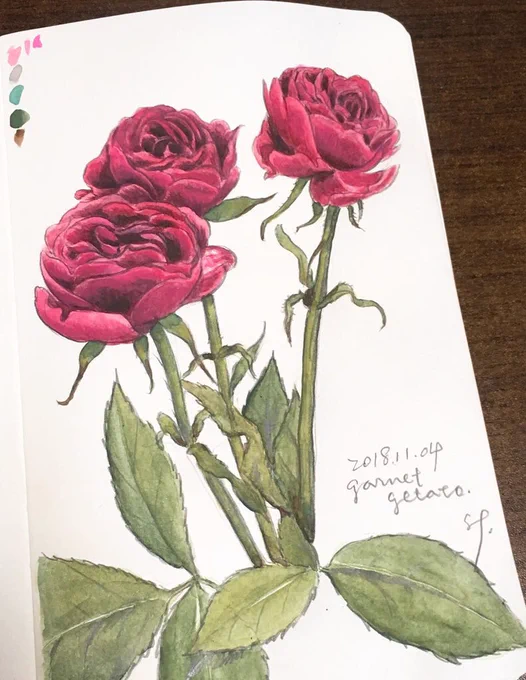 2018.11.04
garnet
getaro.
sp.